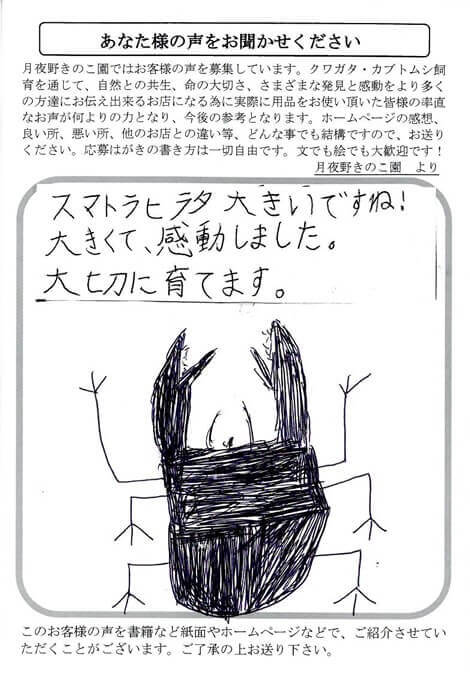 あなた様の声をお聞かせください
月夜野きのこ園ではお客様の声を募集しています。クワガタ・カブトムシ飼
育を通じて、自然との共生、命の大切さ、さまざまな発見と感動をより多く
の方達にお伝え出来るお店になる為に実際に用品をお使い頂いた皆様の率直
なお声が何よりの力となり、今後の参考となります。ホームページの感想、
良い所、悪い所、他のお店との違い等、どんな事でも結構ですので、お送り
ください。応募はがきの書き方は一切自由です。文でも絵でも大歓迎です！
月夜野きのこ園　より
スマトラヒラタ大きいですね!
大きくて、感動しました。
大切に育てます。
このお客様の声を書籍など紙面やホームページなどで、ご紹介させてい
ただくことがございます。ご了承の上お送り下さい。